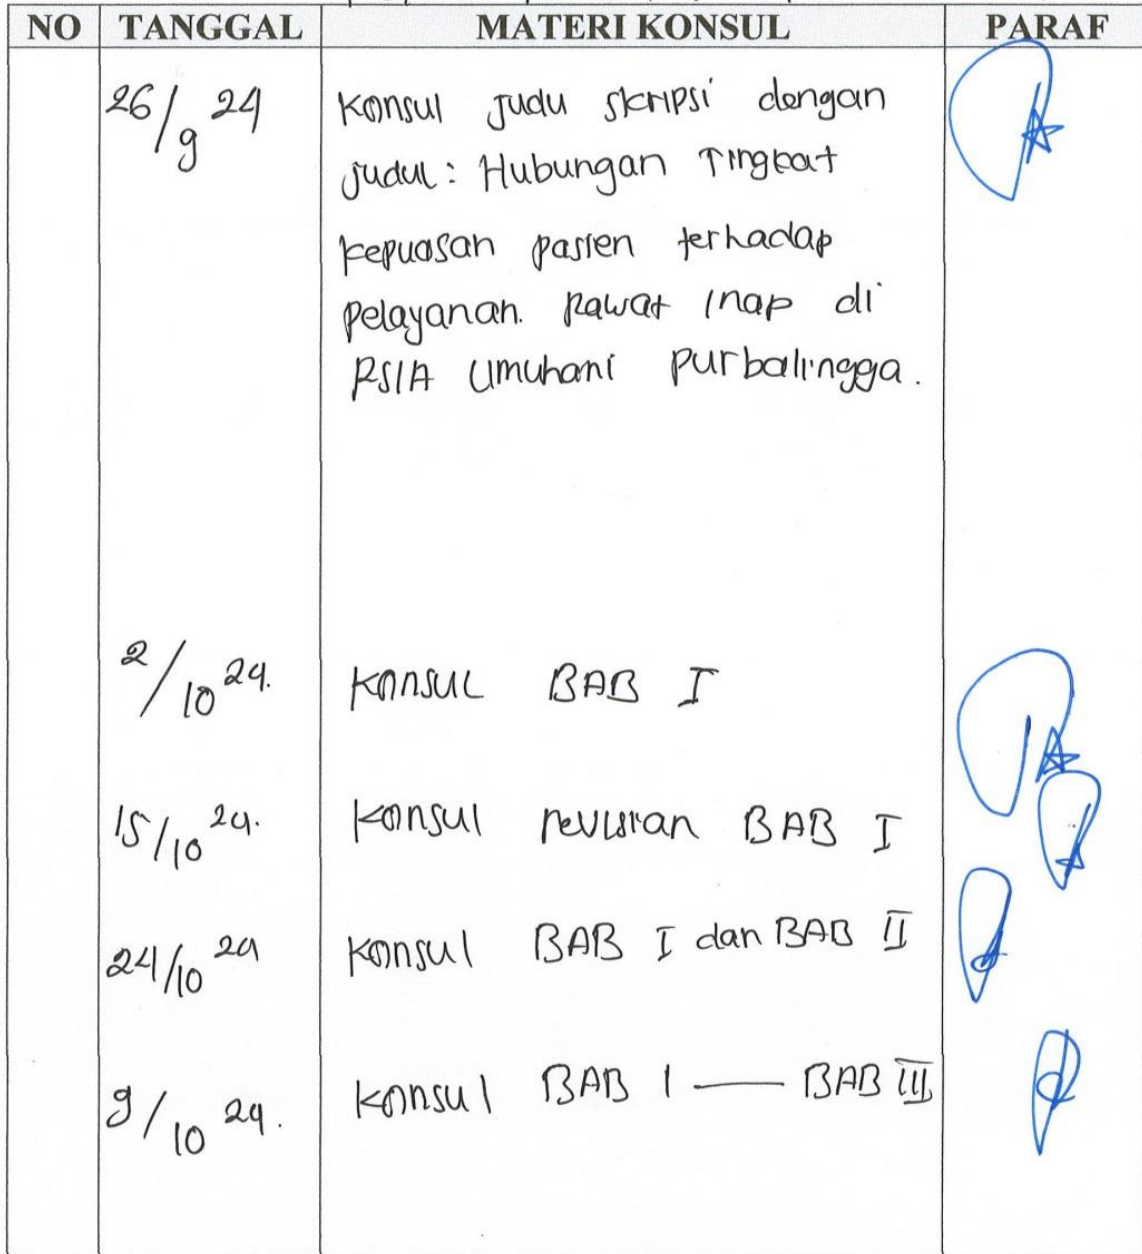 NO TANGGAL MATERI KONSUL PARAF
26/9 24 Konsul Judu skripsi dengan
Judul: Hubungan Tingkat
kepuasan pasien terhadap
pelayanan. Rawat Inap di
RSIA Umuhani Purbalingga.
2/10 24. Konsul BAB I
15/10 24. Konsul revisian BAB I
24/10 24 Konsul BAB I dan BAB II
9/10 24. Konsul BAB I — BAB III